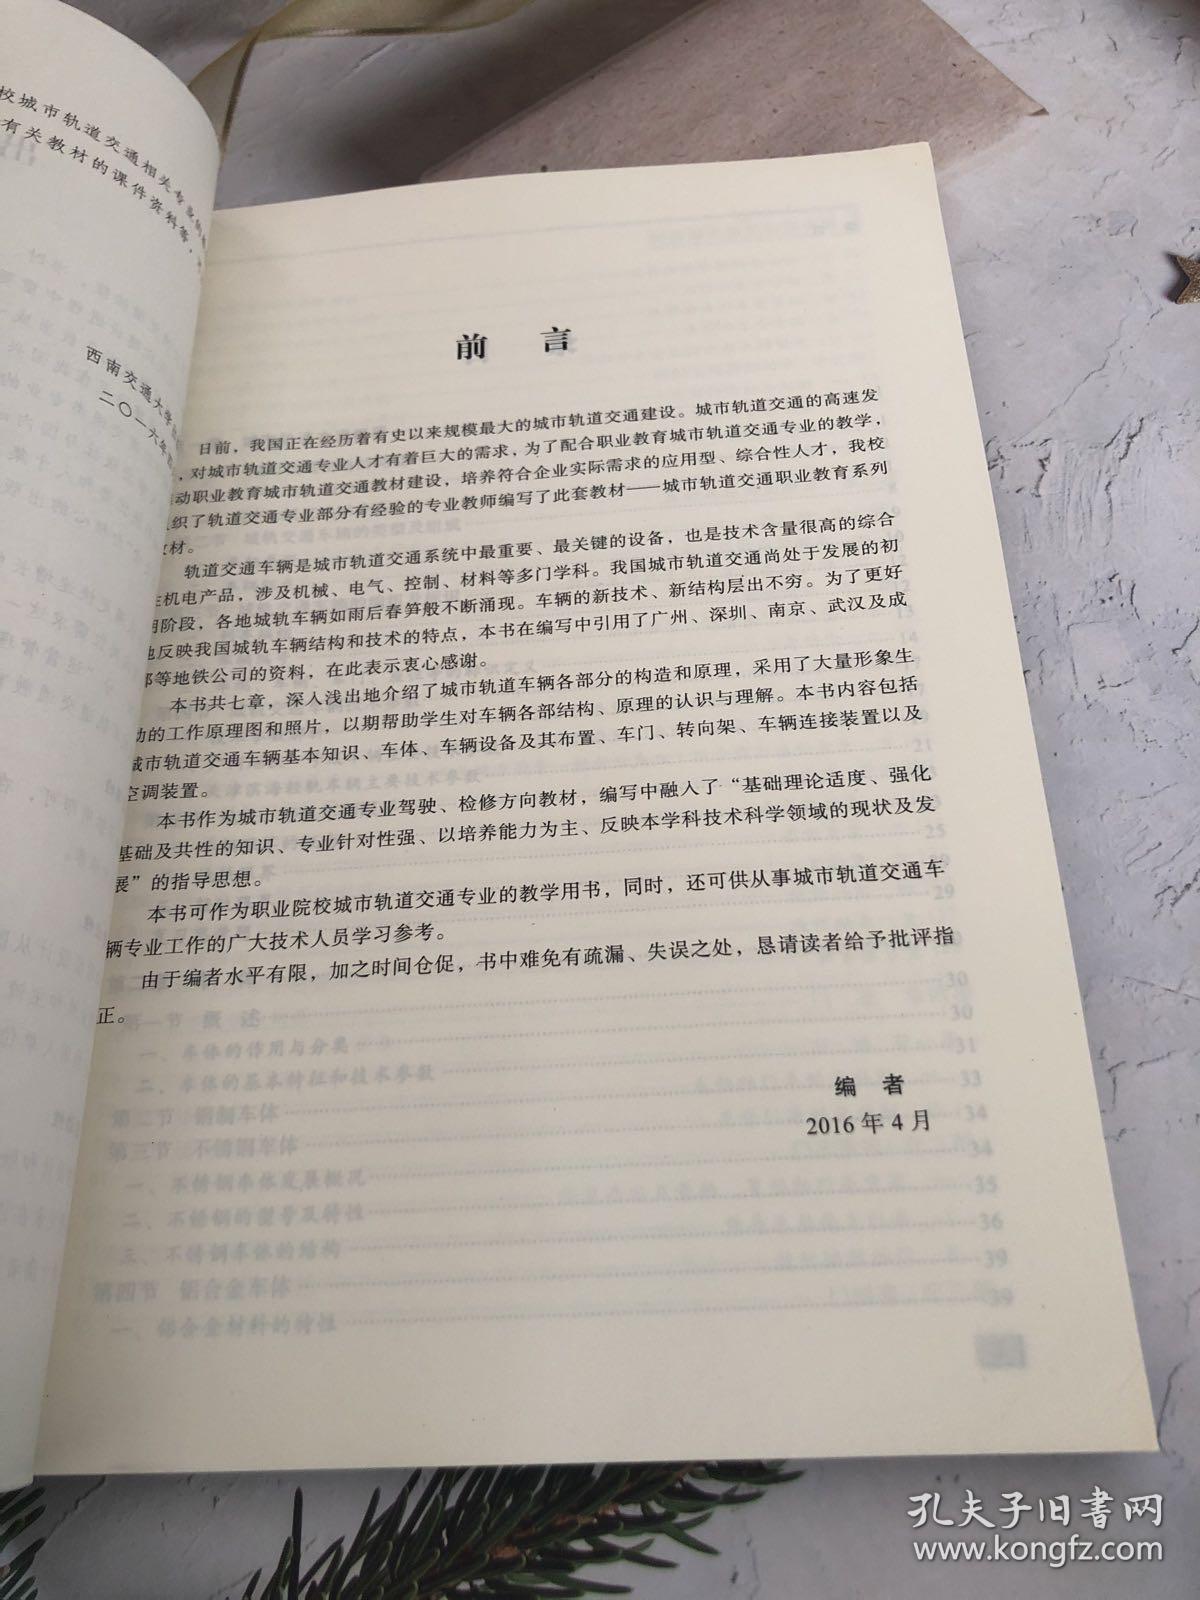 校城市轨道交通相关专业的
有关教材的课件资料等，
西南交通大学
二〇一六年
前 言
日前，我国正在经历着有史以来规模最大的城市轨道交通建设。城市轨道交通的高速发
，对城市轨道交通专业人才有着巨大的需求，为了配合职业教育城市轨道交通专业的教学，
动职业教育城市轨道交通教材建设，培养符合企业实际需求的应用型、综合性人才，我校
织了轨道交通专业部分有经验的专业教师编写了此套教材——城市轨道交通职业教育系列
材。
轨道交通车辆是城市轨道交通系统中最重要、最关键的设备，也是技术含量很高的综合
机电产品，涉及机械、电气、控制、材料等多门学科。我国城市轨道交通尚处于发展的初
期阶段，各地城轨车辆如雨后春笋般不断涌现。车辆的新技术、新结构层出不穷。为了更好
地反映我国城轨车辆结构和技术的特点，本书在编写中引用了广州、深圳、南京、武汉及成
都等地铁公司的资料，在此表示衷心感谢。
本书共七章，深入浅出地介绍了城市轨道车辆各部分的构造和原理，采用了大量形象生
动的工作原理图和照片，以期帮助学生对车辆各部结构、原理的认识与理解。本书内容包括
城市轨道交通车辆基本知识、车体、车辆设备及其布置、车门、转向架、车辆连接装置以及
空调装置。
本书作为城市轨道交通专业驾驶、检修方向教材，编写中融入了“基础理论适度、强化
基础及共性的知识、专业针对性强、以培养能力为主、反映本学科技术科学领域的现状及发
展”的指导思想。
本书可作为职业院校城市轨道交通专业的教学用书，同时，还可供从事城市轨道交通车
辆专业工作的广大技术人员学习参考。
由于编者水平有限，加之时间仓促，书中难免有疏漏、失误之处，恳请读者给予批评指
正。
编 者
2016 年 4 月
孔夫子旧书网
www.kongfz.com